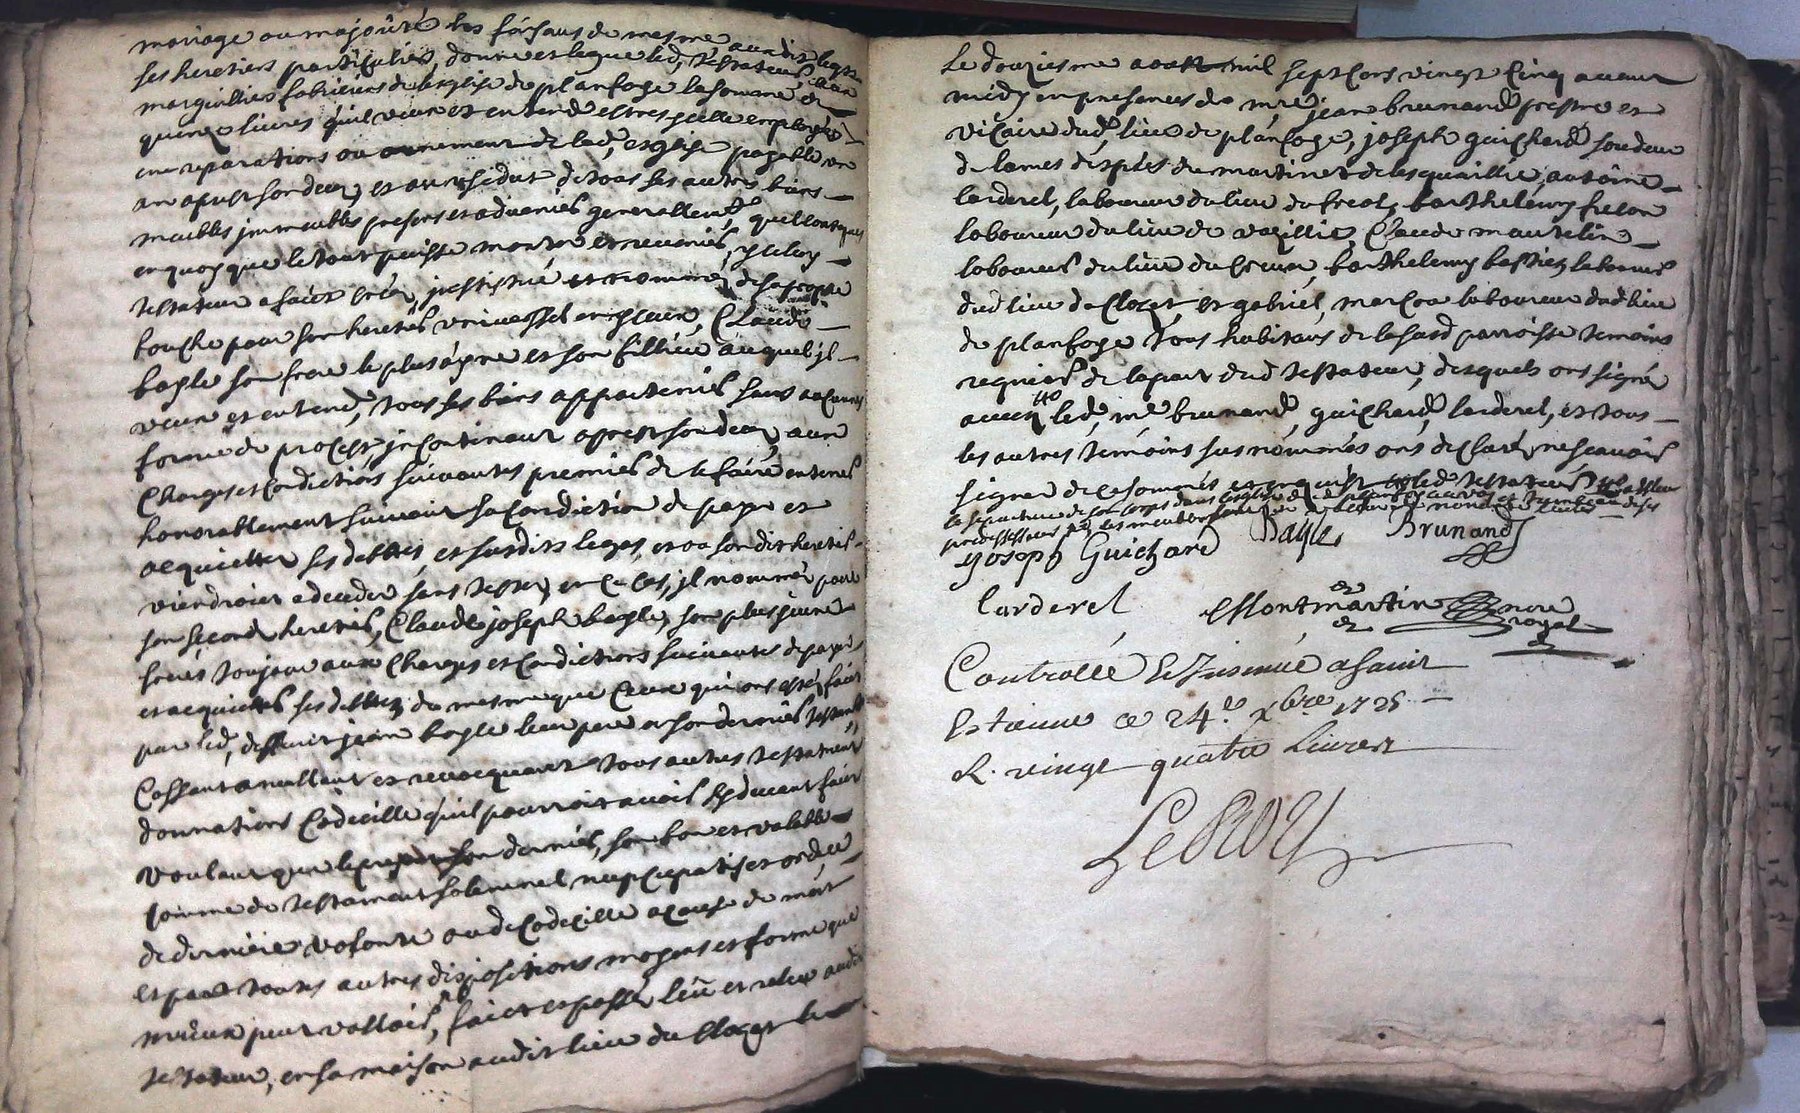 mariage ou majorité les faisans de mesme
ses heretiers particuliers, donne et legue led, testateur aux dit
marguilliers fabriciens de leglise de planfoye la somme de
quinze livres quil veut et entend estres icelle employée
en reparations ou ornement de lad, esglise payable un
an apres son deces et au residut de tous ses autres biens
meubles immeubles presens et advenirs generallemt, quelconques
en quoy que le tout puisse monter et revenir, yceluy
testateur a fait creé, institué et nommé, de sa propre
bouche pour son heretier universsel en iceux, Claude
bayle son frere le plus ayne et son fillieu auquel jl
veut et entend, tous ses biens appartenir sans aucunes
forme de proces, jncontinant apres son deces, aux
Charges et Condictions suivantes premier de le faire enterrer
honorablement suivant sa Condiction de payer et
acquiter ses debtes, et susdits legas, et ou sondit heretier
viendroit a deceder sans tester, en ce cas, jl nomme pour
son second heretier, Claude joseph bayle, son plus jeune
frere toujour aux Charges et Condictions suivantes de payer
et acquiter ses debtes de mesme que Ceux qui ons estés fait
par led, deffunt jean bayle leur pere a son dernier testamt
Cassant annullant et revocquant tous autres testament
donnations Codicille quil pourroit avoir cy devant fait
voulant que le present son dernier, soit bon et valable
comme de testament solemnel nuncupatif et ordre
de derniere volonté ou de Codicille a cause de mort
et par toutes autres dispositions moyens et forme que
mieux peut valloir, fait et passé, leu et releu audit
testateur, en sa maison audit lieu du Clozet le
Le douziesme aoust mil sept Cens vingt Cinq avant
midy en presences de mre jean brunand prestre et
vicaire dud, lieu de planfoye, joseph guichard soudeur
de lames d'espées du martinet de lesquaillie, antoine
larderel, laboureur du lieu du Creat, barthelemy frecon
laboureur du lieu de vazillie, Claude mautelin
laboureur du lieu du , barthelemy bastien laboureur
dud lieu de Clozet, et gabriel, marcou laboureur dud lieu
de planfoye tous habitans de la susd parroisse temoins
requier de la part dud testateur, desquels ons signé
avecq led, mre brunand, guichard, larderel, et tous
les autres temoins sus nommés ons declaré ne scavoir
signer de ce sommés et enquist led testateur
la sepulture de son corps dans leglise dud planfoye au vas et tumbeau de ses
predessesseurs
Joseph Guichard Bayle Brunand
larderel Montmartin nore
royal
Controllé et Insinué a saint
Estienne ce 24e xbre 1725
R. vingt quatre Livres
LeRoy